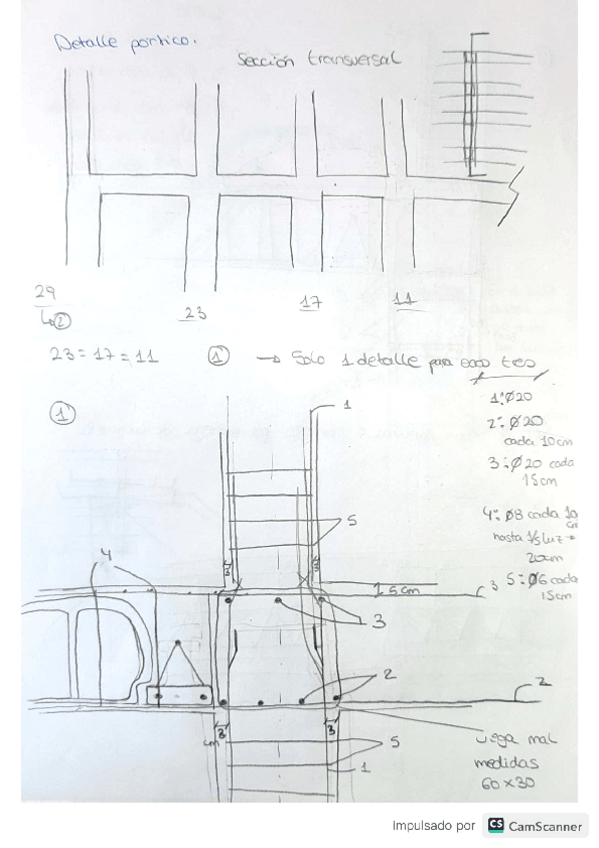 Detalle pórtico.
Sección transversal
29
↳②
23
17
11
23 = 17 = 11 ① → Solo 1 detalle para esos tres
1: Ø20
2: Ø20
cada 10cm
3: Ø20 cada
15cm
4: Ø8 cada 10
cm
hasta 1/5 luz =
20cm
5: Ø6 cada
15cm
①
1
5
4
3
3
1 5cm
3
3
2
2
3
cm
3
5
1
viga mal
medidas
60x30
Impulsado por CS CamScanner